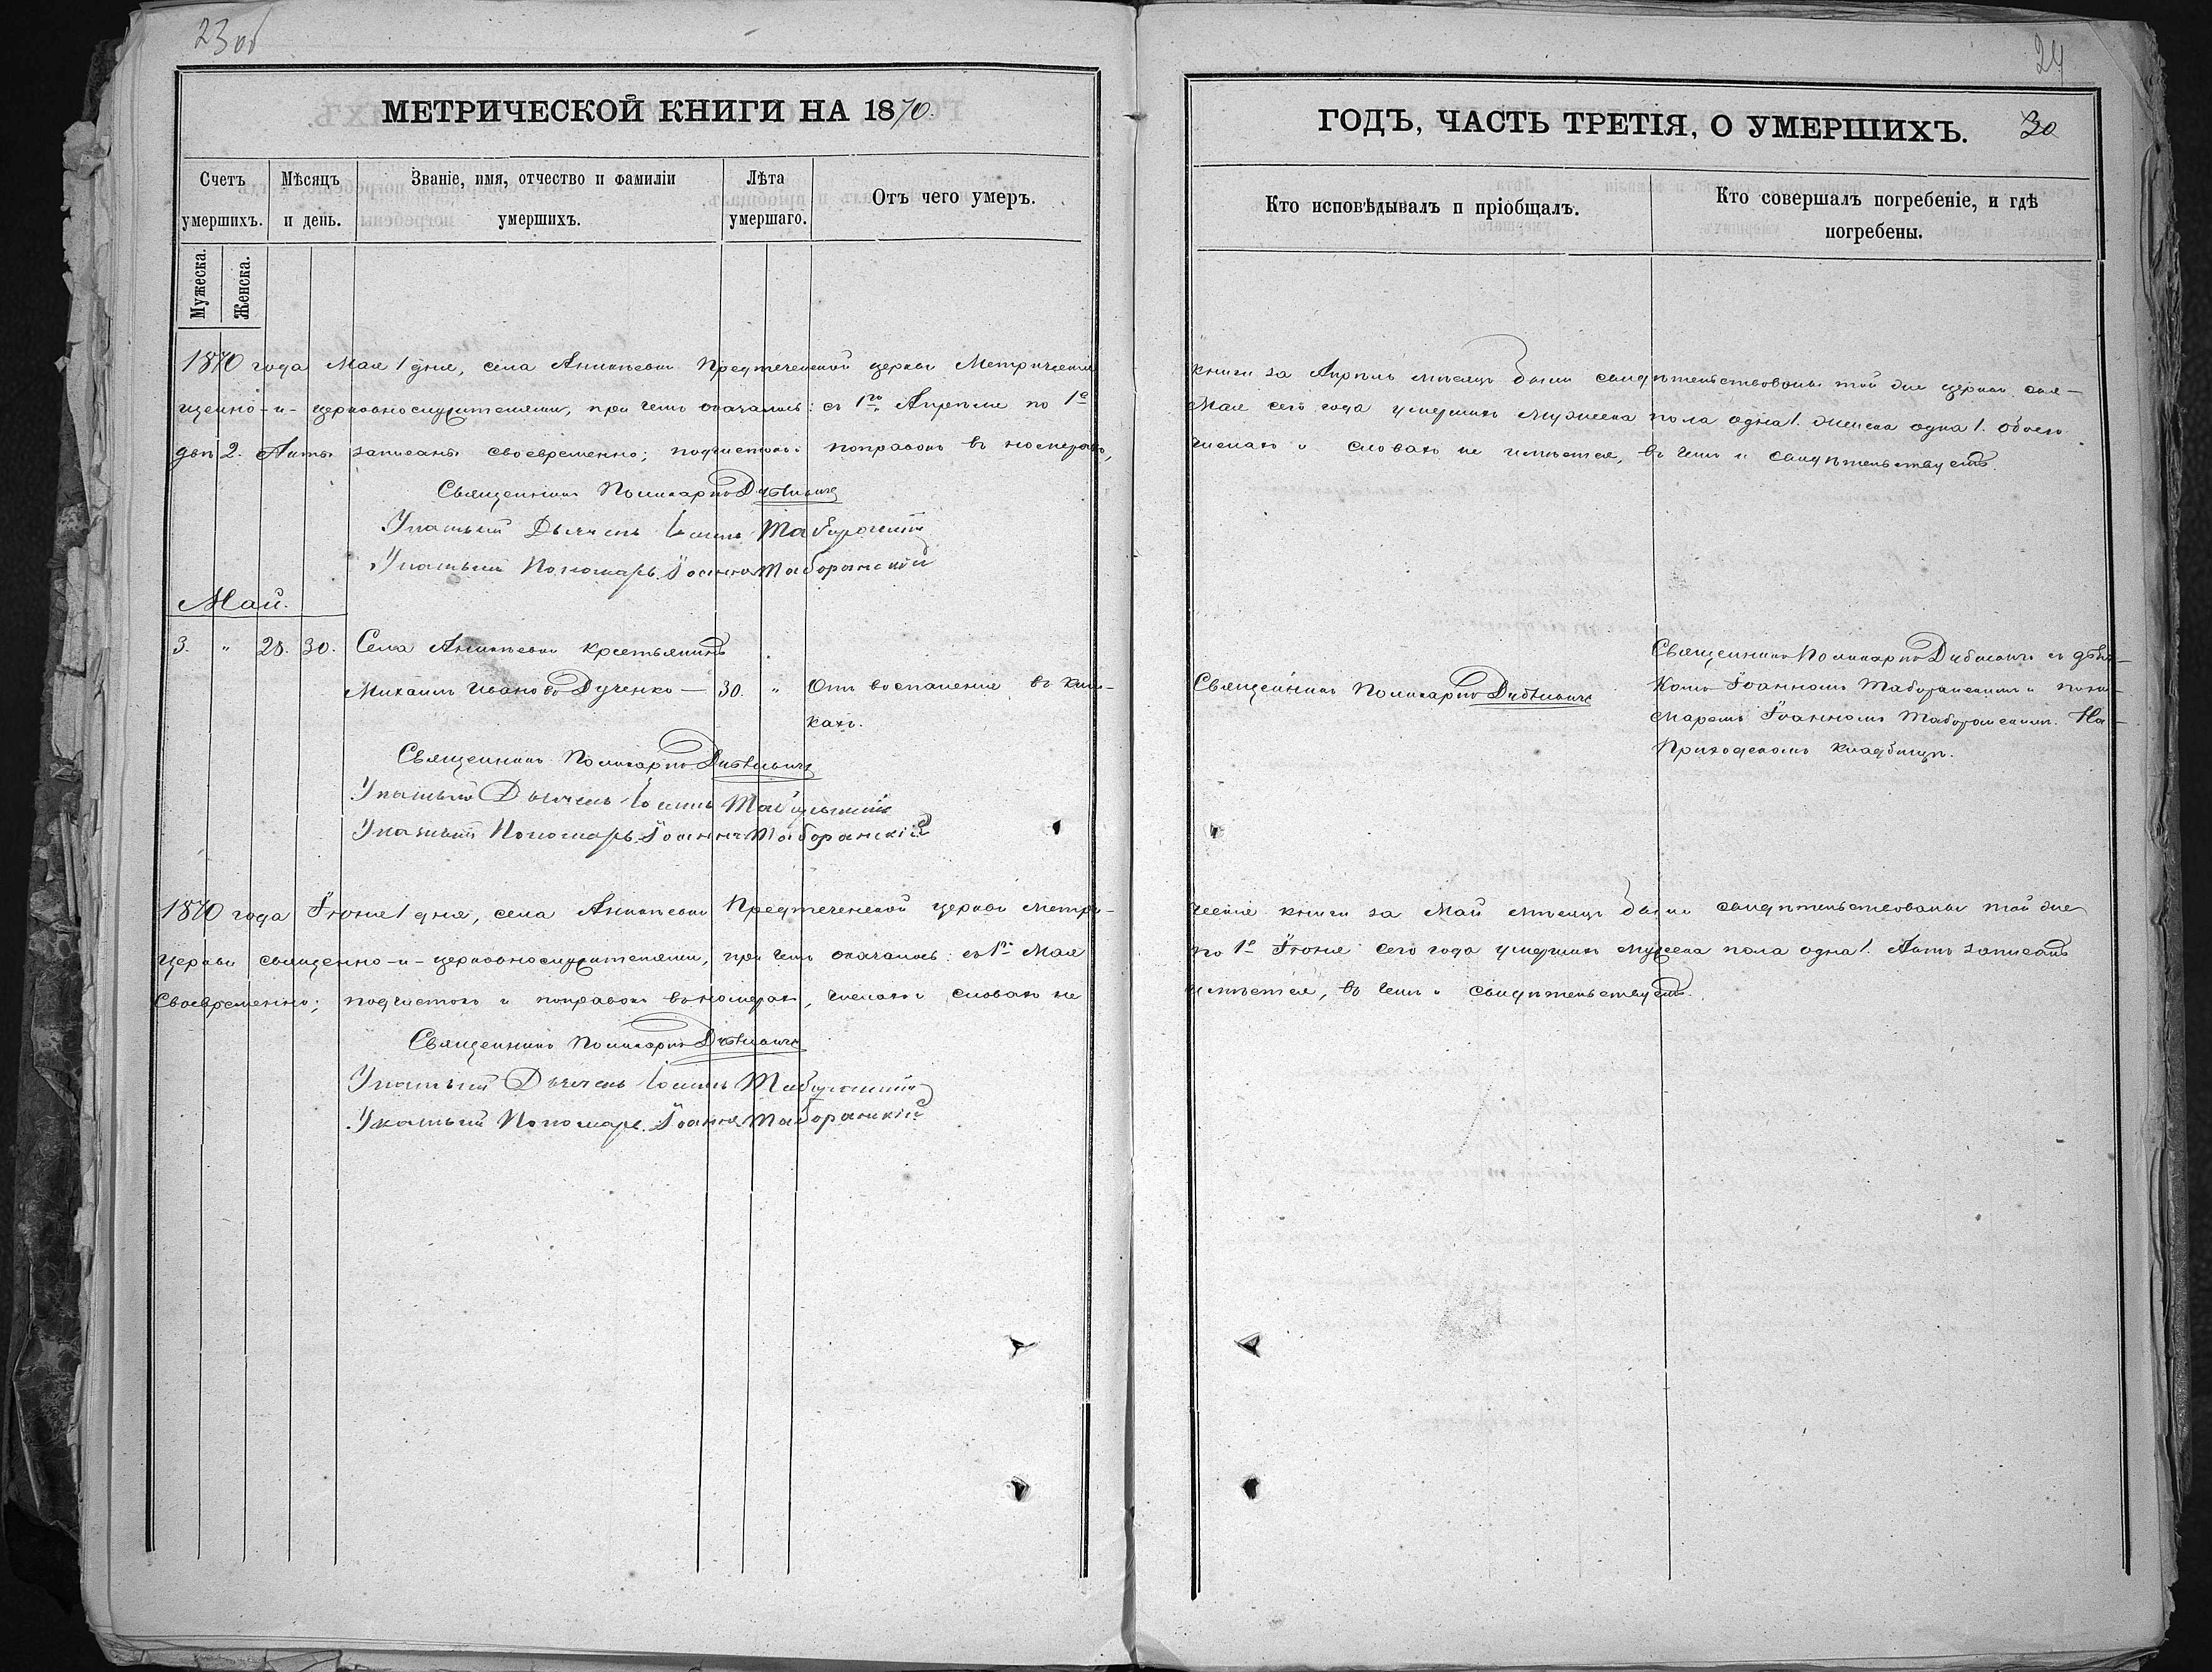 23 об
МЕТРИЧЕСКОЙ КНИГИ НА 1870.
Счетъ умершихъ.
Мѣсяцъ и день.
Званіе, имя, отчество и фамиліи умершихъ.
Лѣта умершаго.
Отъ чего умеръ.
Мужеска.
Женска.
1870 года Мая 1 дня, села Аникѣевки Предтеченской церкви Метрическія
щенно-и-церковнослужителями, при чемъ оказалось: съ 1го Апрѣля по 1е
двѣ 2. Акты записаны своевременно; подчистокъ и поправокъ въ номерахъ,
Священникъ Поликарпъ
Указный Дьячекъ Іоаннъ Таборанскій
Указный Пономарь Іоаннъ Таборанскій
Май.
3. " 28. 30. Села Аникѣевки крестьянинъ
Михаилъ Ивановъ Дученко — 30. " Отъ воспаленія въ киш-
кахъ.
Священникъ Поликарпъ
Указный Дьячекъ Іоаннъ Таборанскій
Указный Пономарь Іоаннъ Таборанскій
1870 года Іюня 1 дня, села Аникѣевки Предтеченской церкви метри-
церкви священно-и-церковнослужителями, при чемъ оказалось: съ 1го Мая
своевременно; подчистокъ и поправокъ въ номерахъ, числахъ и словахъ не
Священникъ Поликарпъ
Указный Дьячекъ Іоаннъ Таборанскій
Указный Пономарь Іоаннъ Таборанскій
24
ГОДЪ, ЧАСТЬ ТРЕТІЯ, О УМЕРШИХЪ. 30
Кто исповѣдывалъ и пріобщалъ.
Кто совершалъ погребеніе, и гдѣ погребены.
книги за Апрѣль мѣсяцъ были свидѣтельствованы той же церкви свя-
Мая сего года умершихъ мужеска пола одна 1. женска одна 1. обоего
числахъ и словахъ не имѣется, въ чемъ и свидѣтельствуемъ.
Священникъ Поликарпъ
Священникъ Поликарпъ съ дья-
комъ Іоанномъ Таборанскимъ и поно-
маремъ Іоанномъ Таборанскимъ. На
Приходскомъ кладбищѣ.
ческія книги за Май мѣсяцъ были свидѣтельствованы той же
по 1е Іюня сего года умершихъ мужеска пола одна 1. Актъ записанъ
имѣется, въ чемъ и свидѣтельствуемъ.